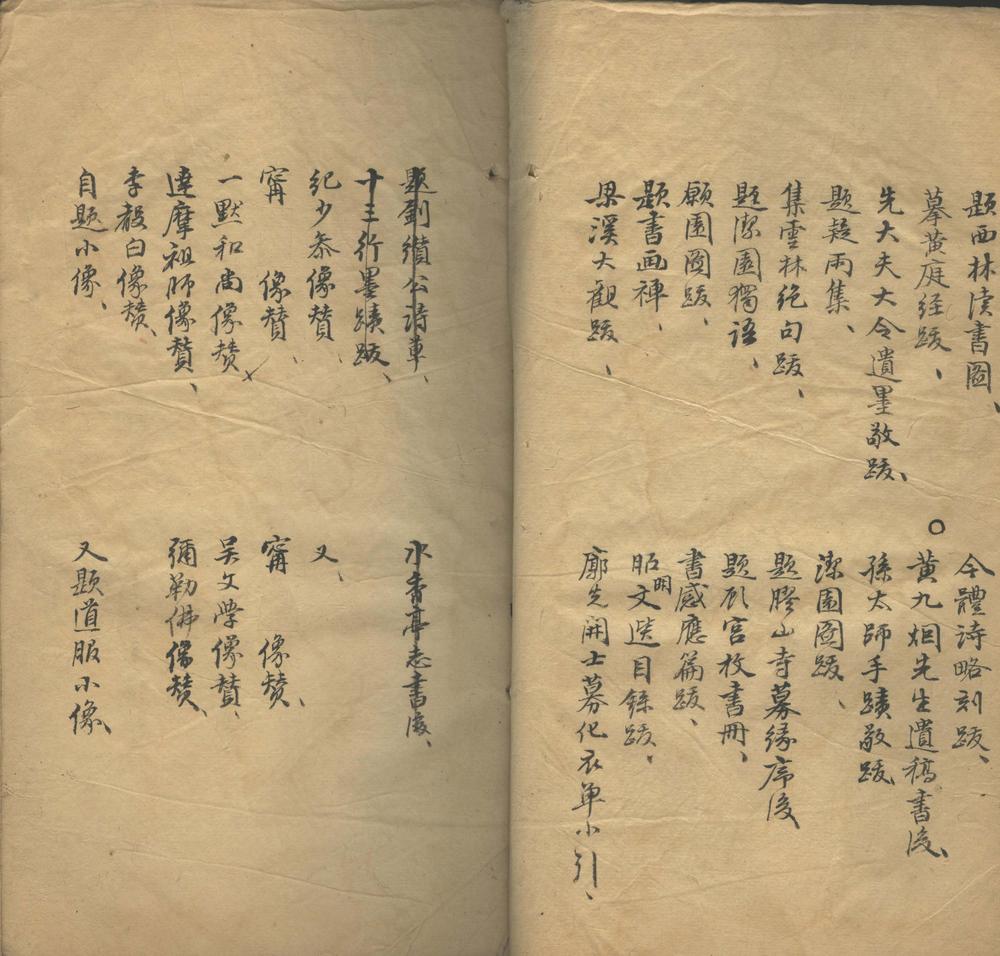 題西林讀書圖、
今體詩略刻跋、
摹黃庭经跋、
黃九烟先生遺稿書後、
先大夫大令遺墨敬跋、
孫太師手蹟敬跋
題疑雨集、
潔園圖跋、
集雲林绝句跋、
題膠山寺募缘序後
題潔園獨語、
題欣宫枚書冊、
願園圖跋、
書感應篇跋、
題書画禅、
昭明文選目錄跋、
梁溪大觀跋、
廓先開士募化衣单小引、
題劉纘公詩草、
水香亭志書後、
十三行墨蹟跋、
紀少参像賛、
又、
甯 像賛、
甯 像赞、
一默和尚像赞
吴文學像賛、
達摩祖師像賛、
彌勒佛像赞、
李毅白像赞、
自題小像、
又題道服小像、